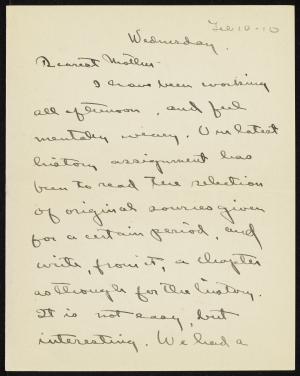 Feb 10-10
Wednesday.
Dearest Mother-
I have been working
all afternoon, and feel
mentally weary. Our latest
history assignment has
been to read the selection
of original sources given
for a certain period, and
write, from it, a chapter
as though for the history.
It is not easy, but
interesting. We had a